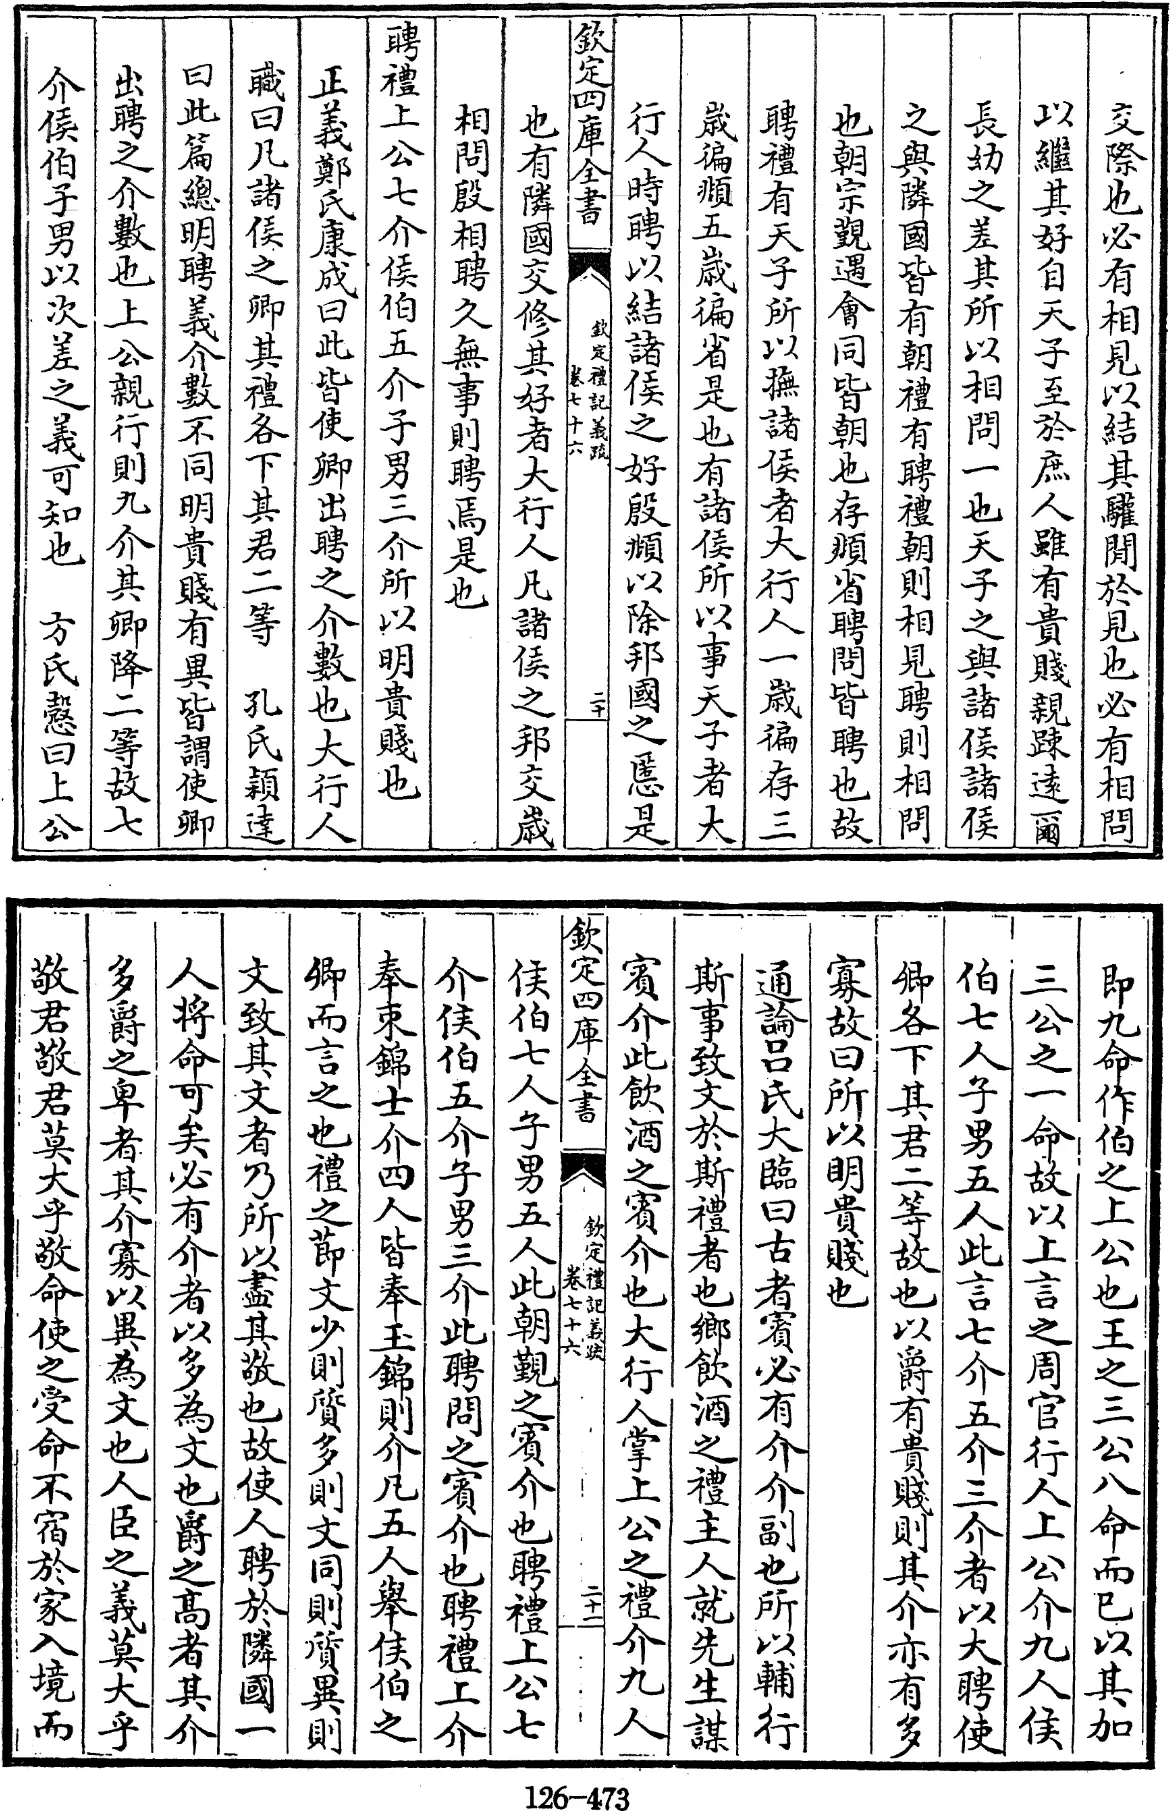 交際也必有相見以結其驩閒於見也必有相問
以繼其好自天子至於庶人雖有貴賤親踈逺爾
長幼之差其所以相問一也天子之與諸侯諸侯
之與隣國皆有朝禮有聘禮朝則相見聘則相問
也朝宗覲遇會同皆朝也存頫省聘問皆聘也故
聘禮有天子所以撫諸侯者大行人一歲徧存三
歲徧頫五歲徧省是也有諸侯所以事天子者大
行人時聘以結諸侯之好殷頫以除邦國之慝是
欽定四庫全書
欽定禮記義疏
卷七十六
二十
也有隣國交修其好者大行人凡諸侯之邦交歲
相問殷相聘久無事則聘焉是也
聘禮上公七介侯伯五介子男三介所以明貴賤也
正義鄭氏康成曰此皆使卿出聘之介數也大行人
職曰凡諸侯之卿其禮各下其君二等 孔氏穎達
曰此篇總明聘義介數不同明貴賤有異皆謂使卿
出聘之介數也上公親行則九介其卿降二等故七
介侯伯子男以次差之義可知也 方氏慤曰上公
即九命作伯之上公也王之三公八命而已以其加
三公之一命故以上言之周官行人上公介九人侯
伯七人子男五人此言七介五介三介者以大聘使
卿各下其君二等故也以爵有貴賤則其介亦有多
寡故曰所以明貴賤也
通論呂氏大臨曰古者賓必有介介副也所以輔行
斯事致文於斯禮者也鄉飲酒之禮主人就先生謀
賓介此飲酒之賓介也大行人掌上公之禮介九人
欽定四庫全書
欽定禮記義疏
卷七十六
二十一
侯伯七人子男五人此朝覲之賓介也聘禮上公七
介侯伯五介子男三介此聘問之賓介也聘禮上介
奉束錦士介四人皆奉玉錦則介凡五人舉侯伯之
卿而言之也禮之節文少則質多則文同則質異則
文致其文者乃所以盡其敬也故使人聘於隣國一
人將命可矣必有介者以多為文也爵之高者其介
多爵之卑者其介寡以異為文也人臣之義莫大乎
敬君敬君莫大乎敬命使之受命不宿於家入境而
126-473